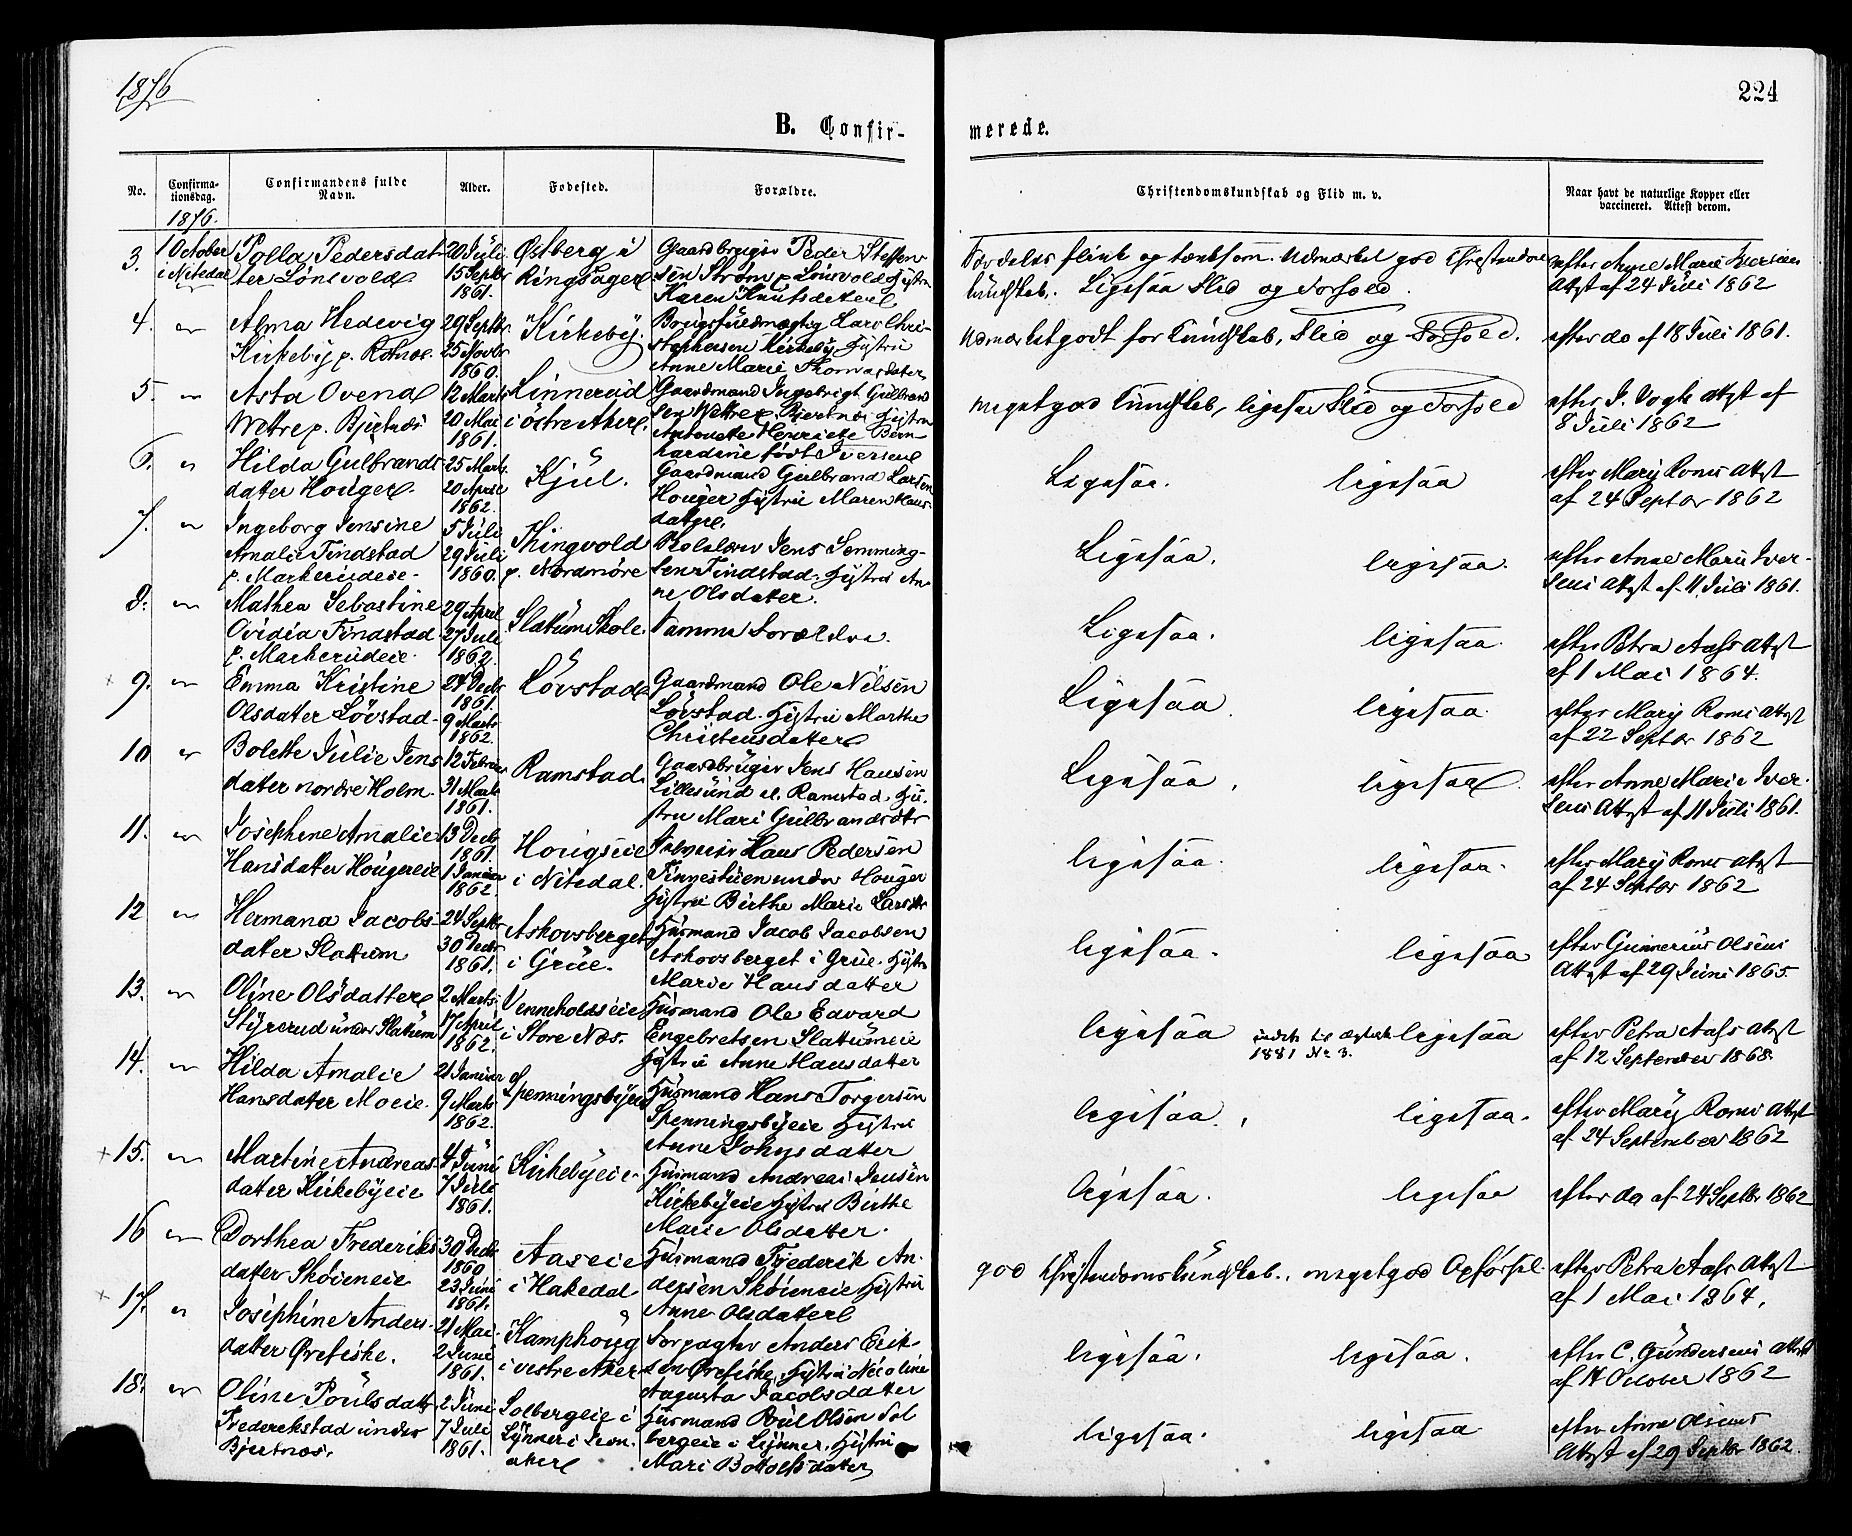 1876
224
B. Confir-
merede.
No.
Confirma-
tionsdag.
Confirmandens fulde
Navn.
Alder.
Fødested.
Forældre.
Christendomskundskab og Flid m. v.
Naar havt de naturlige Kopper eller
vaccineret. Attest derom.
1876.
3.
1 October
i Nitedal
Polla Pedersdat-
ter Lönsvold
20 Juli
15 Septbr
1861.
Østberg i
Ringsager
Gaardbruger Peder Steffen-
sen Ström p. Lönsvold Hustru
Karen Knutsdatter
og tænksom. Udmærket god Christendoms-
kundskab. Ligesaa Flid og Forhold.
efter Anne Marie Iversens
Attst af 24 Juli 1862
4.
Alma Hedevig
Kirkeby p. Rotnæs
29 Septbr
25 Novbr
1860.
Kirkeby.
Hans Chri-
stophersen Kirkeby Hustru
Anne Marie Thomasdatter
Udmærket godt for Kundskab, Flid og Forhold.
efter do af 18 Juli 1861.
5.
Asta Ovena
Wettre p. Bjertnæs
12 Marts
20 Mai
1861.
Linnerud
i östre Aker.
Gaardmand Ingebrigt Gulbrand-
sen Wettre p. Bjertnæs Hustru
Antonette Henriette Bern-
hardine født Iversen
meget god Kundskab, ligesaa Flid og Forhold
efter J. Vogts Attst af
8 Juli 1862
6.
Hilda Gulbrands-
datter Houger.
25 Marts
20 April
1862.
Kjul.
Gaardmand Gulbrand Larsen
Houger Hustru Maren Hans-
datter.
Ligesaa.
ligesaa
efter Mary Roms Attst
af 24 Septbr 1862
7.
Ingeborg Jensine
Amalie Tindstad
p. Markerudeie.
5 Juli
29 Juli
1860.
Thingvold
p. Nordmöre
Skolelærer Jens Semming-
sen Tindstad. Hustru An-
ne Olsdatter.
Ligesaa.
ligesaa.
efter Anne Marie Iver-
sens Attst af 11 Juli 1861.
8.
Mathea Sebastine
Ovidia Tindstad
p. Markerudeie.
29 April
27 Juli
1862.
Slatum Skole.
Samme Forældre.
Ligesaa.
ligesaa.
efter Petra Aass Attst
af 1 Mai 1864.
9.
Emma Kristine
Olsdatter Løvstad.
24 Decbr
1861.
9 Marts
1862.
Løvstad
Gaardmand Ole Nilsen
Løvstad. Hustru Marthe
Christensdatter
Ligesaa.
ligesaa.
efter Mary Roms Attst
af 22 Septbr 1862
10
Bolette Julie Jens-
datter nordre Holm.
12 Februar
31 Marts
1861.
Ramstad.
Gaardbruger Jens Hansen
Lillesund el. Ramstad. Hu-
stru Mari Gulbrandsdtr
Ligesaa.
ligesaa.
efter Anne Marie Iver-
sens Attst af 11 Juli 1861.
11.
Josephine Amalie
Hansdatter Hougereie
13 Decbr
1861.
1 Januar
1862
Hougseie
i Nitedal.
Hans Pedersen
Finnestuen under Houger
Hustru Birthe Marie Larsdtr
ligesaa.
ligesaa.
efter Mary Roms Attst
af 24 Septbr 1862
12
Hermana Jacobs-
datter Slattum
24 Septbr
30 Decbr
1861.
Askovsberget
i Grue.
Husmand Jacob Jacobsen
Askovsberget i Grue. Hustru
Marie Hansdatter
ligesaa.
ligesaa
efter Gunnerius Olsens
Attst af 29 Juni 1865.
13.
Oline Olsdatter
Styrerud under Slatum
2 Marts
17 April
1862.
Venneholdseie
i Store Næs.
Husmand Ole Edvard
Engebretsen Slattumeie
Hustru Anne Hansdatter
ligesaa
1881 No 3.
ligesaa
efter Petra Aass Attst
af 12 September 1868.
14.
Hilda Amalie
Hansdatter Moeie.
21 Januar
9 Marts
1862.
Spenningsbyeie
Husmand Hans Torgersen
Spenningsbyeie Hustru
Anne Johnsdatter
ligesaa.
ligesaa.
efter Mary Roms Attst
af 24 September 1862
15.
Martine Andreas-
datter Kirkebyeie
4 Juni
7 Juli
1861.
Kirkebyeie.
Husmand Andreas Jensen
Kirkebyeie Hustru Birthe
Marie Olsdatter.
ligesaa.
ligesaa
efter do af 24 Septbr 1862
16
Dorthea Frederiks-
datter Skøieneie
30 Decbr
1860
23 Juni
1861.
Aaseie
i Hakedal
Husmand Frederik An-
dersen Skøieneie Hustru
Anne Olsdatter
god Christendomskundskab., meget god Opførsel.
efter Petra Aass Attst
af 1 Mai 1864.
17.
Josephine Anders-
datter Ørefiske.
21 Mai
2 Juni
1861.
Kamphoug
i vestre Aker
Forpagter Anders Erik-
sen Ørefiske, Hustru Nicoline
Augusta Jacobsdatter
ligesaa.
ligesaa.
efter C. Gundersens Attst
af 14 October 1862
18.
Oline Poulsdatter
Frederikstad under
Bjertnæs.
2 Juni
7 Juli
1861.
Solbergeie i
Lynner i Jevn-
aker
Husmand Poul Olsen Sol-
bergeie i Lynner, Hustru
Mari Bottolfsdatter
ligesaa.
ligesaa
efter Anne Olsens
Attst af 29 Septbr 1862.